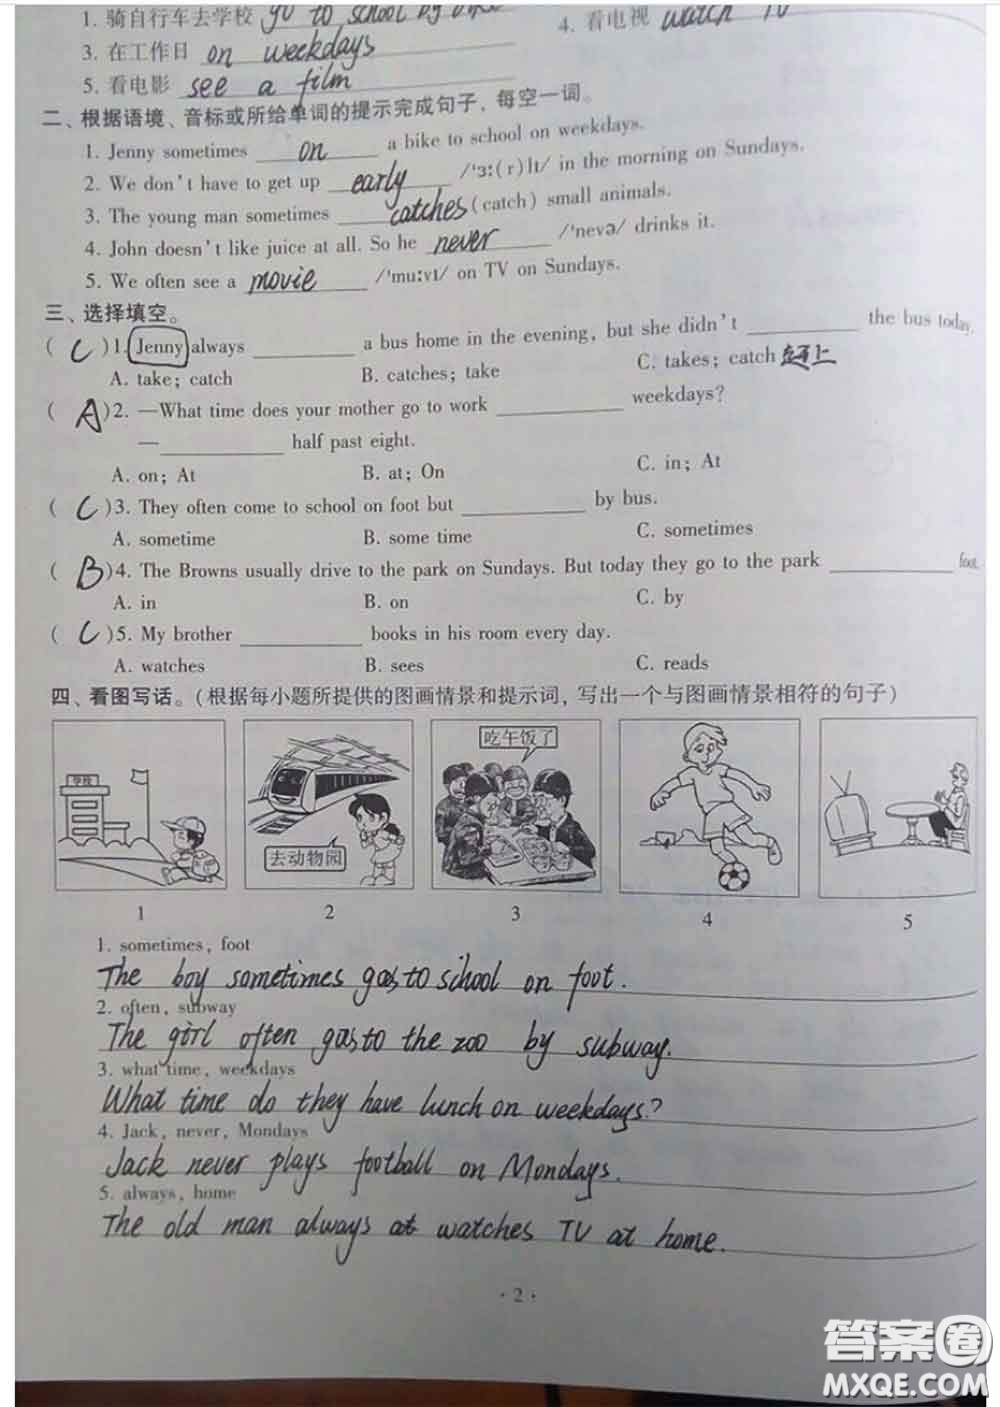 1. 骑自行车去学校 go to school by bike
4. 看电视 watch TV
3. 在工作日 on weekdays
5. 看电影 see a film
二、根据语境、音标或所给单词的提示完成句子，每空一词。
1. Jenny sometimes on a bike to school on weekdays.
2. We don't have to get up early /'ɜː(r)lɪ/ in the morning on Sundays.
3. The young man sometimes catches (catch) small animals.
4. John doesn't like juice at all. So he never /'nevə/ drinks it.
5. We often see a movie /'muːvɪ/ on TV on Sundays.
三、选择填空。
( C )1. Jenny always ____ a bus home in the evening, but she didn't ____ the bus today.
A. take; catch B. catches; take C. takes; catch 赶上
( A )2. —What time does your mother go to work ____ weekdays?
—____ half past eight.
A. on; At B. at; On C. in; At
( C )3. They often come to school on foot but ____ by bus.
A. sometime B. some time C. sometimes
( B )4. The Browns usually drive to the park on Sundays. But today they go to the park ____ foot.
A. in B. on C. by
( C )5. My brother ____ books in his room every day.
A. watches B. sees C. reads
四、看图写话。(根据每小题所提供的图画情景和提示词，写出一个与图画情景相符的句子)
学校
去动物园
吃午饭了
1 2 3 4 5
1. sometimes, foot
The boy sometimes goes to school on foot.
2. often, subway
The girl often goes to the zoo by subway.
3. what time, weekdays
What time do they have lunch on weekdays?
4. Jack, never, Mondays
Jack never plays football on Mondays.
5. always, home
The old man always at watches TV at home.
· 2 ·
答案圈
MXQE.COM